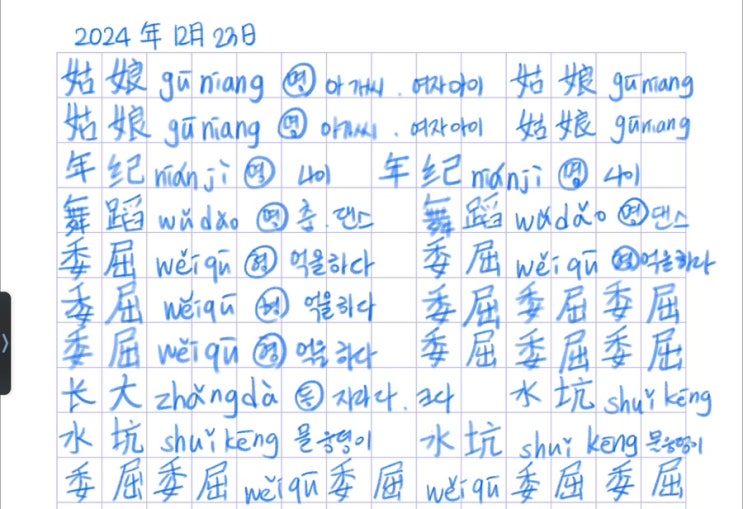 2024年12月23日
姑娘 gūniang ㊅ 아가씨. 여자아이 姑娘 gūniang
姑娘 gūniang 명 아가씨. 여자아이 姑娘 gūniang
年纪 niánjì 명 나이 年纪 niánjì 명 나이
舞蹈 wǔdǎo 명 춤.댄스 舞蹈 wǔdǎo 명 댄스
委屈 wěiqū 형 억울하다 委屈 wěiqū 형 억울하다
委屈 wěiqū 형 억울하다 委屈委屈委屈
委屈 wěiqū 형 억울하다 委屈委屈委屈
长大 zhǎngdà 동 자라다.크다 水坑 shuǐkēng
水坑 shuǐkēng 물웅덩이 水坑 shuǐ kēng 물웅덩이
委屈委屈 wěiqū 委屈 wěiqū 委屈委屈